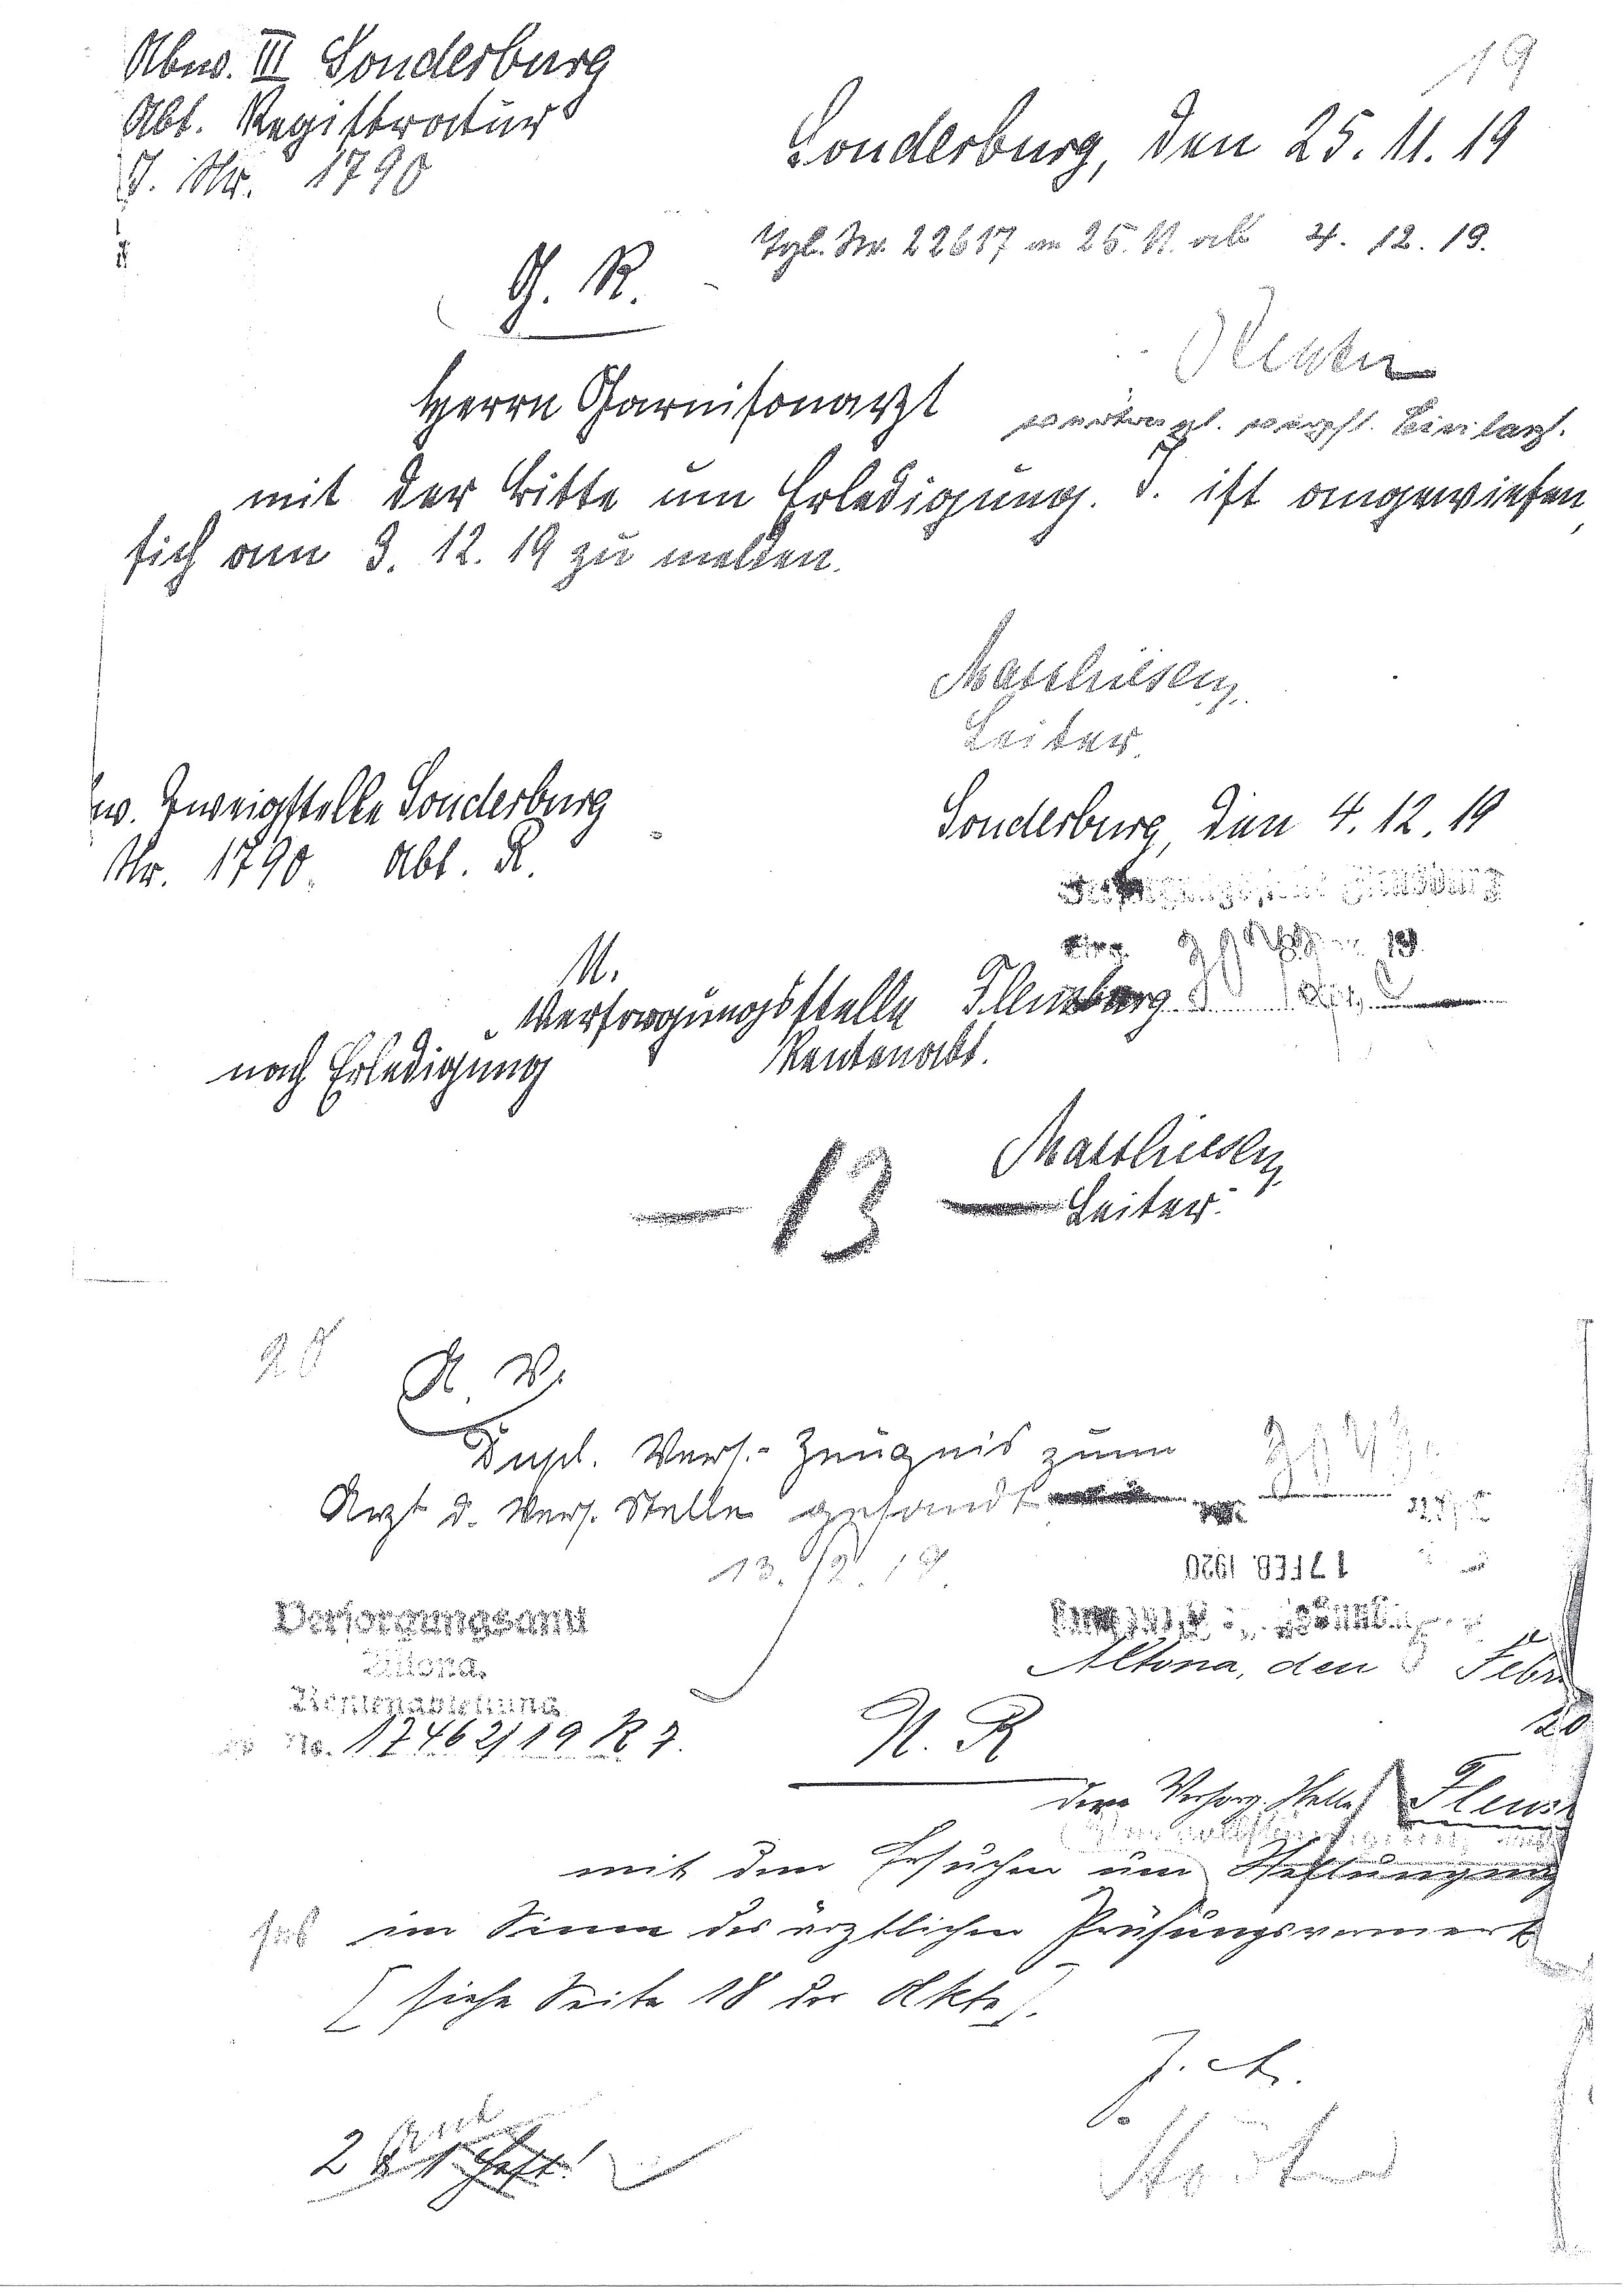 19
Abw. III Sonderburg
Abt. Registratur
J. Nr. 1790
Sonderburg, den 25. 11. 19
Tgb. Nr. 22617 an 25. 11. ab 4. 12. 19.
G. R.
Herrn Garnisonarzt
mit der Bitte um Erledigung. J. ist angewiesen
sich am 3. 12. 19 zu melden.
Matthiesen
Leiter.
w. Zweigstelle Sonderburg
Nr. 1790. Abt. R.
Sonderburg, den 4. 12. 19
U.
Versorgungsstelle Flensburg
Rentenabt.
nach Erledigung
Matthiesen
Leiter.
— 13 —
20
Dupl. Vers.- Zeugnis zum
Arzt d. Vers. Stelle gesandt
13. 12. 19.
17 FEB. 1920
Versorgungsamt
Altona.
Rentenabteilung
No. 17462/19 R 7.
Altona, den Febr.
20
U. R
der Versorg. Stelle Flens
mit dem Ersuchen um
im Sinne des ärztlichen Prüfungsvermerk
(siehe Seite 18 der Akte).
J. A.
2
Heft!